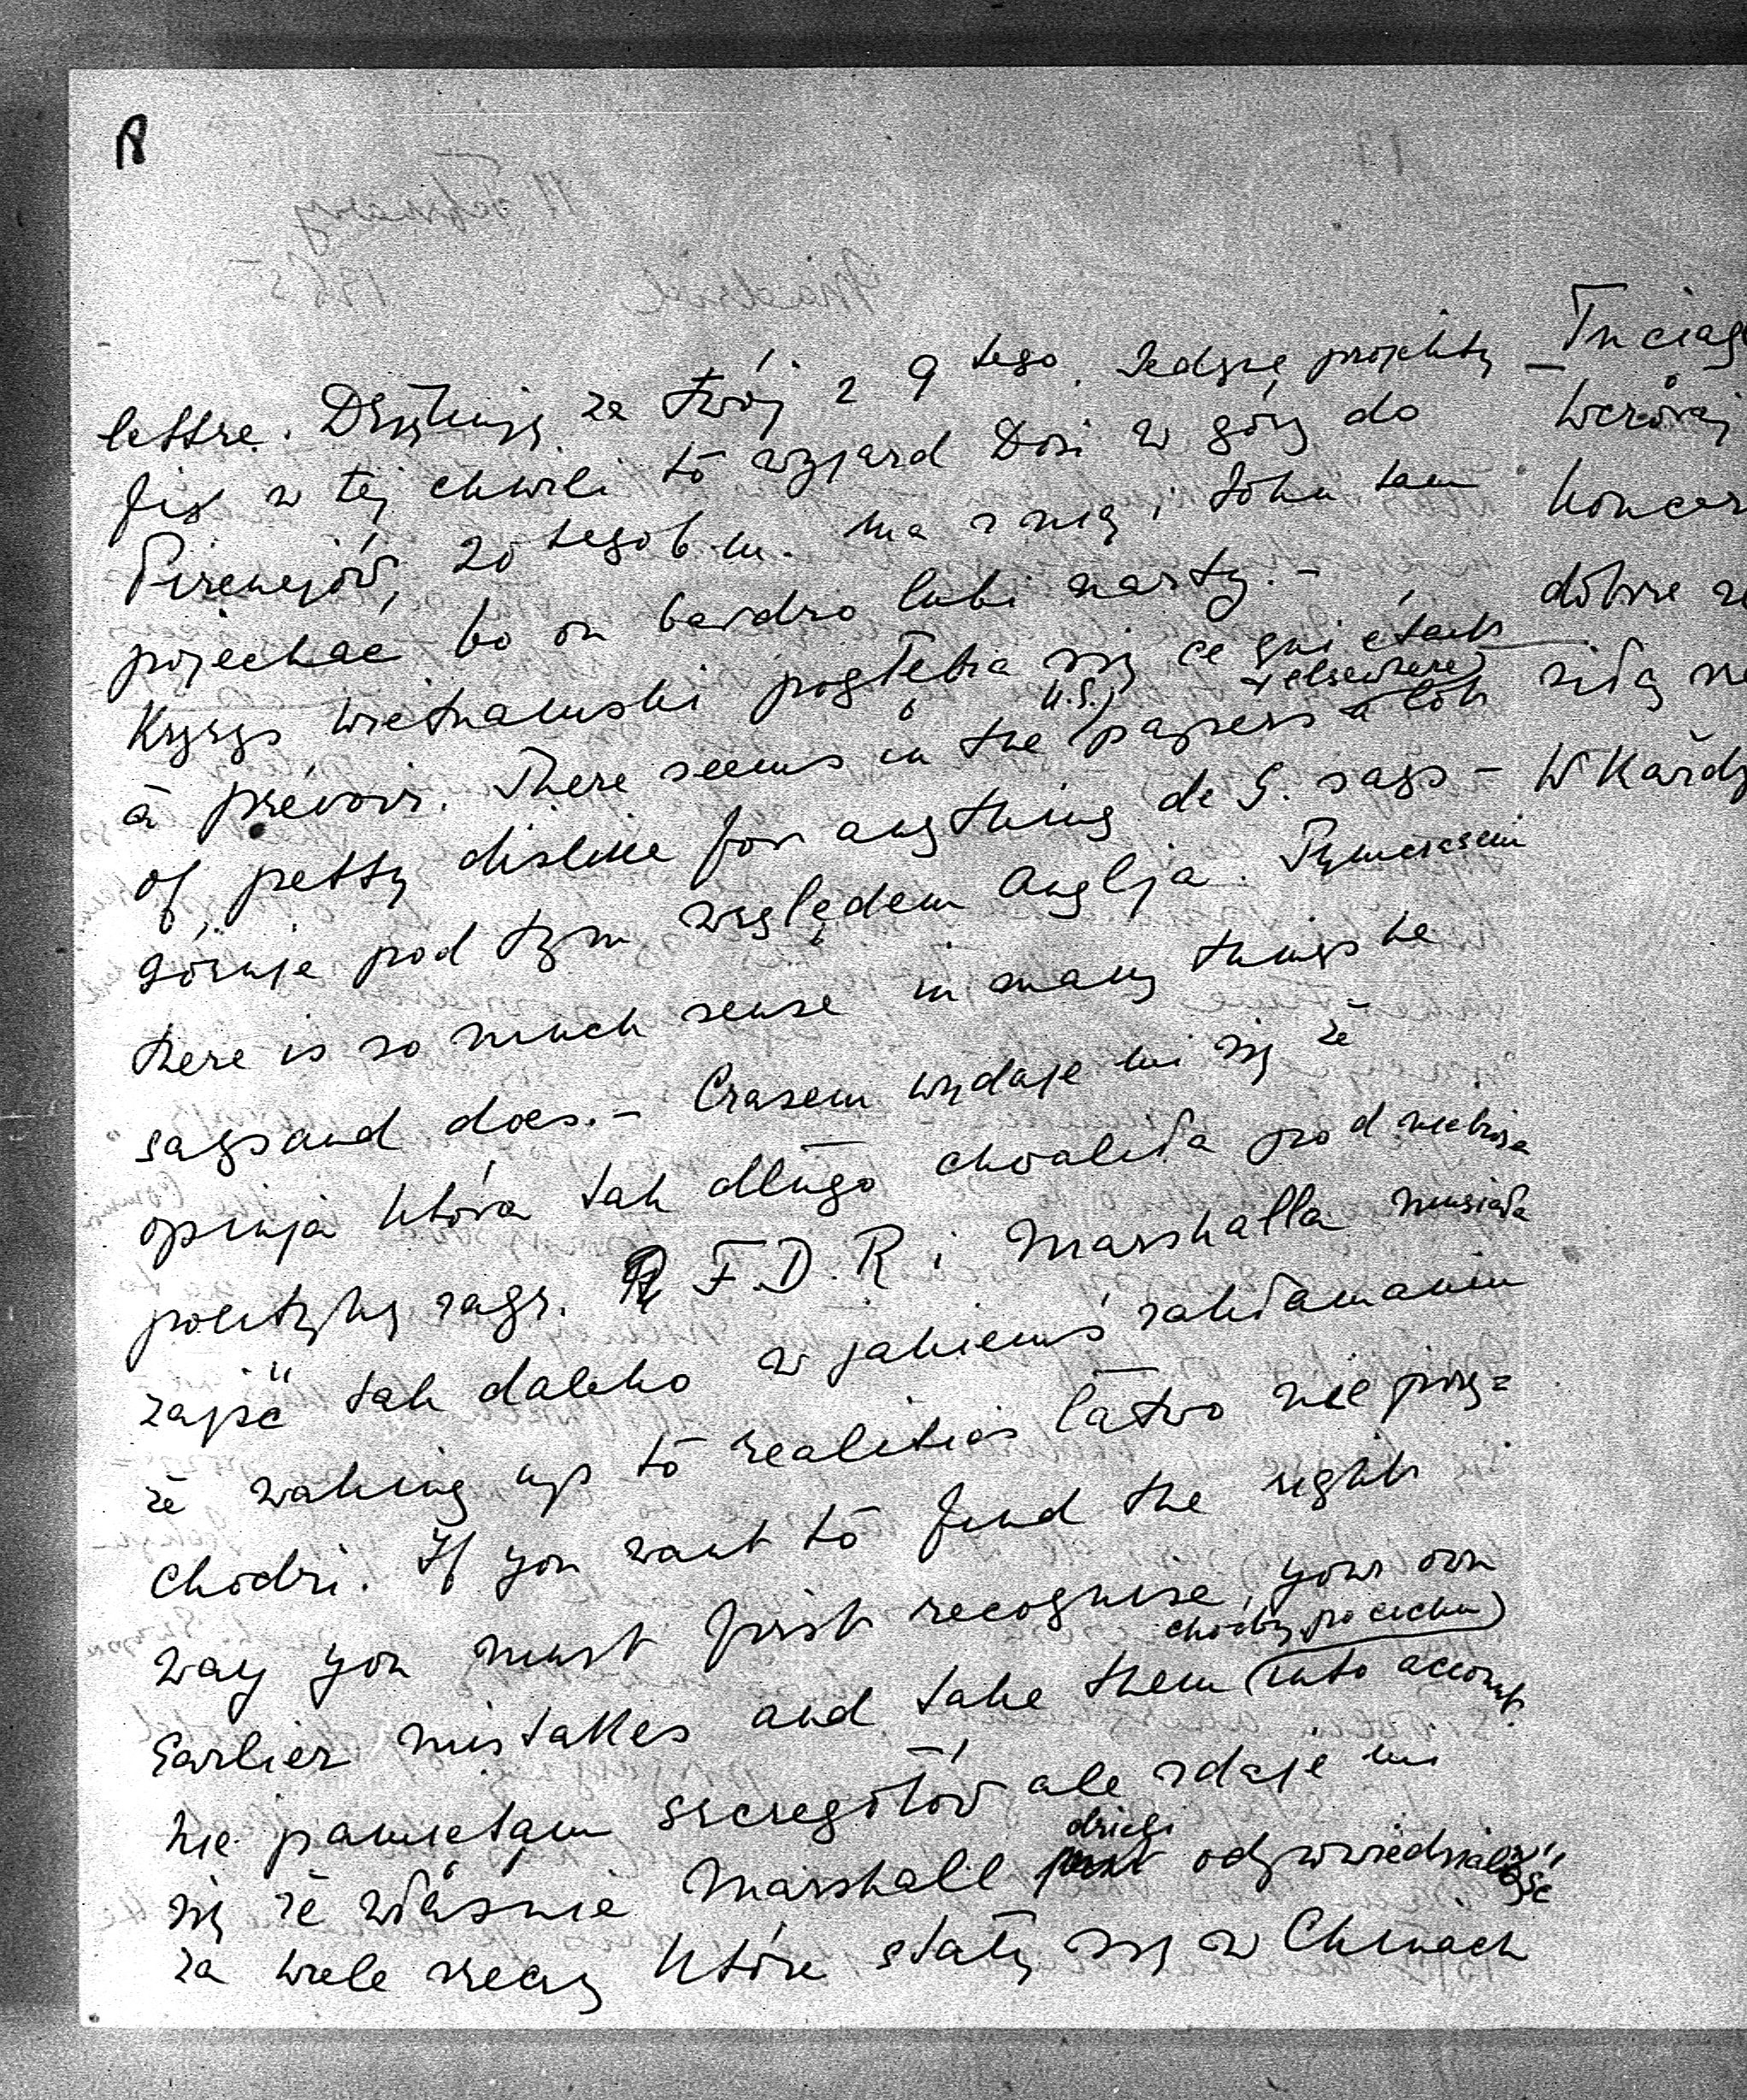 R
lettre. Dziękuję za twój z 9 tego. Jedyne projekty
fix w tej chwili to wyjazd Dosi w góry do
Pirenejów, 20 tego b.m. Ma z nią i John tam
pojechać bo on bardzo lubi narty. –
Kryzys wietnamski pogłębia się ce qui était
à prévoir. There seems in the (U.S.) papers (& elsewhere) a lot
of petty dislike for anything de G. says –
góruje pod tym względem Anglja. Tymczasem
there is so much sense in many things he
says and does. – Czasem wydaje mi się że
opinja która tak długo chwaliła pod niebiosa
politykę zagr. F.D.R i Marshalla musiała
zajść tak daleko w jakiemś zakłamaniu
że waking up to realities łatwo nie przy=
chodzi. If you want to find the right
way you must first recognise your own
earlier mistakes and take them (choćby po cichu) into account.
Nie pamiętam szczegółów ale zdaje mi
się że właśnie Marshall dzieli odpowiedzialność
za wiele rzeczy które stały się w Chinach
W Każdy